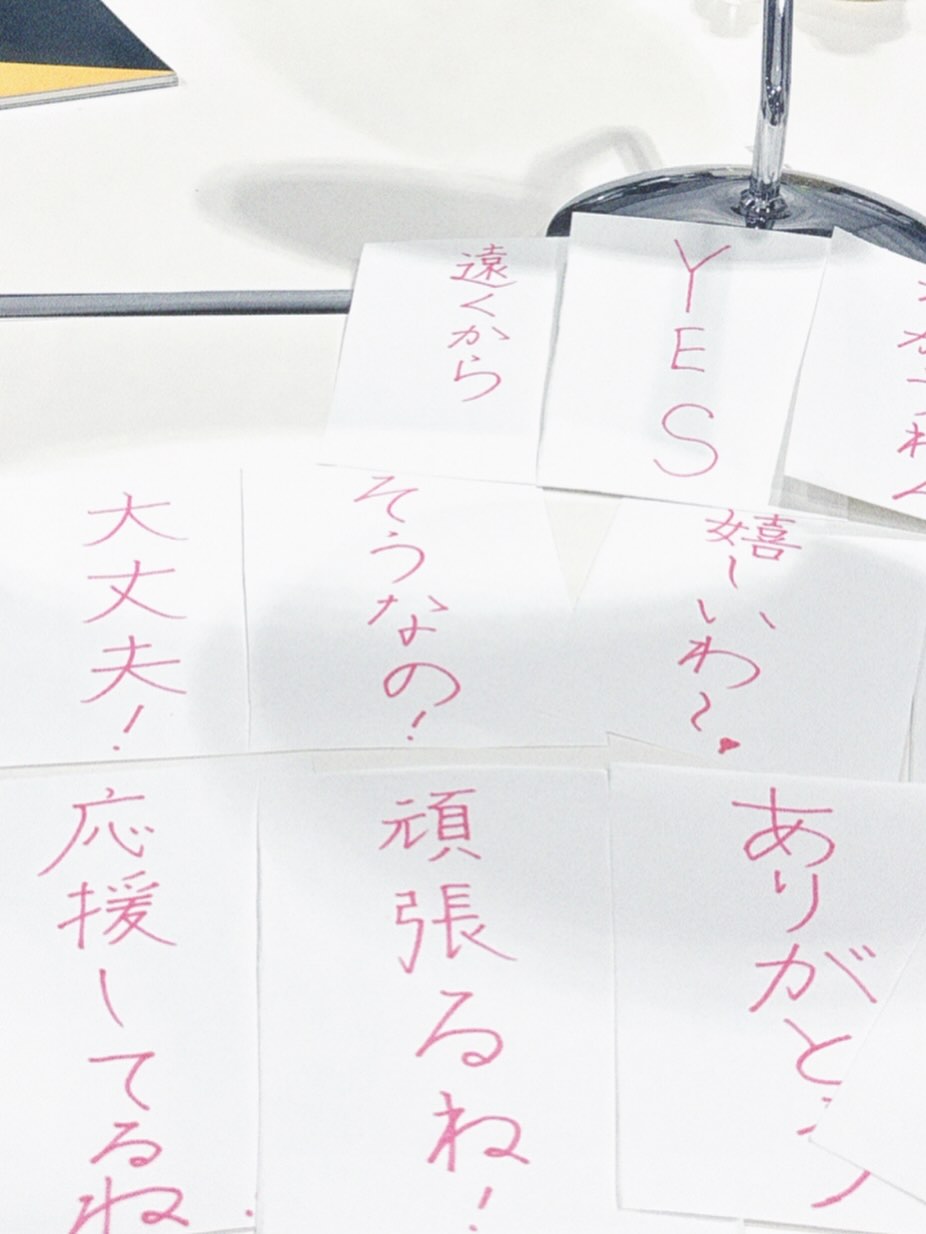 遠くから
YES
大丈夫！
そうなの！
嬉しいわ〜♥
応援してるね
頑張るね！
ありがとう